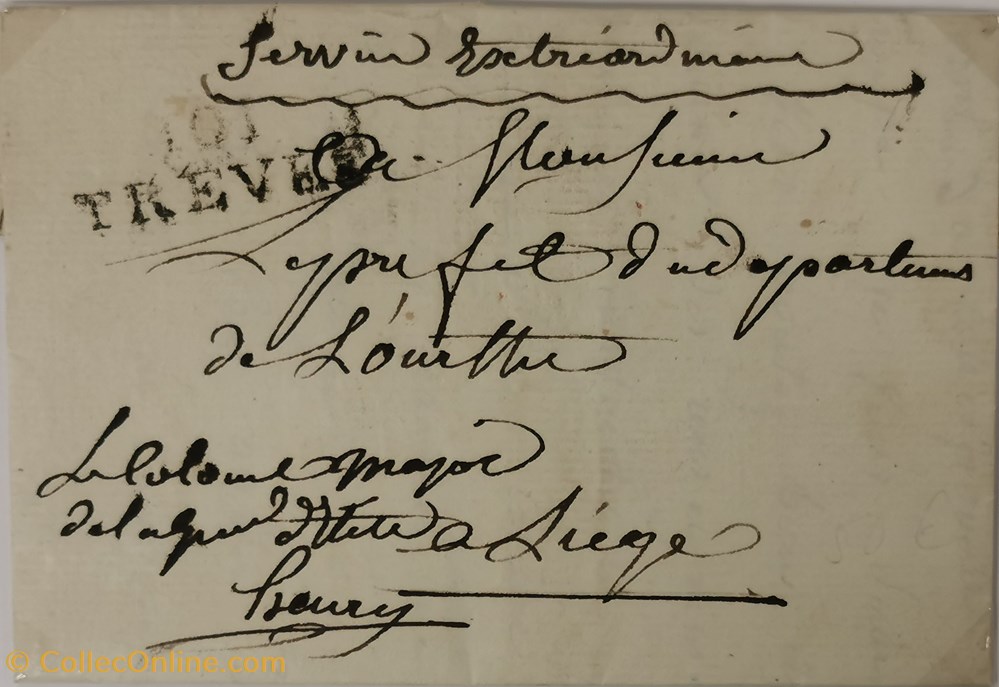 Service Extréardinaire
101
TREVES
A Monsieur
Le prefet du Departemens
de L'ourthe
Le Colonel Major
de la d'élite a Liége
henry
© CollecOnline.com